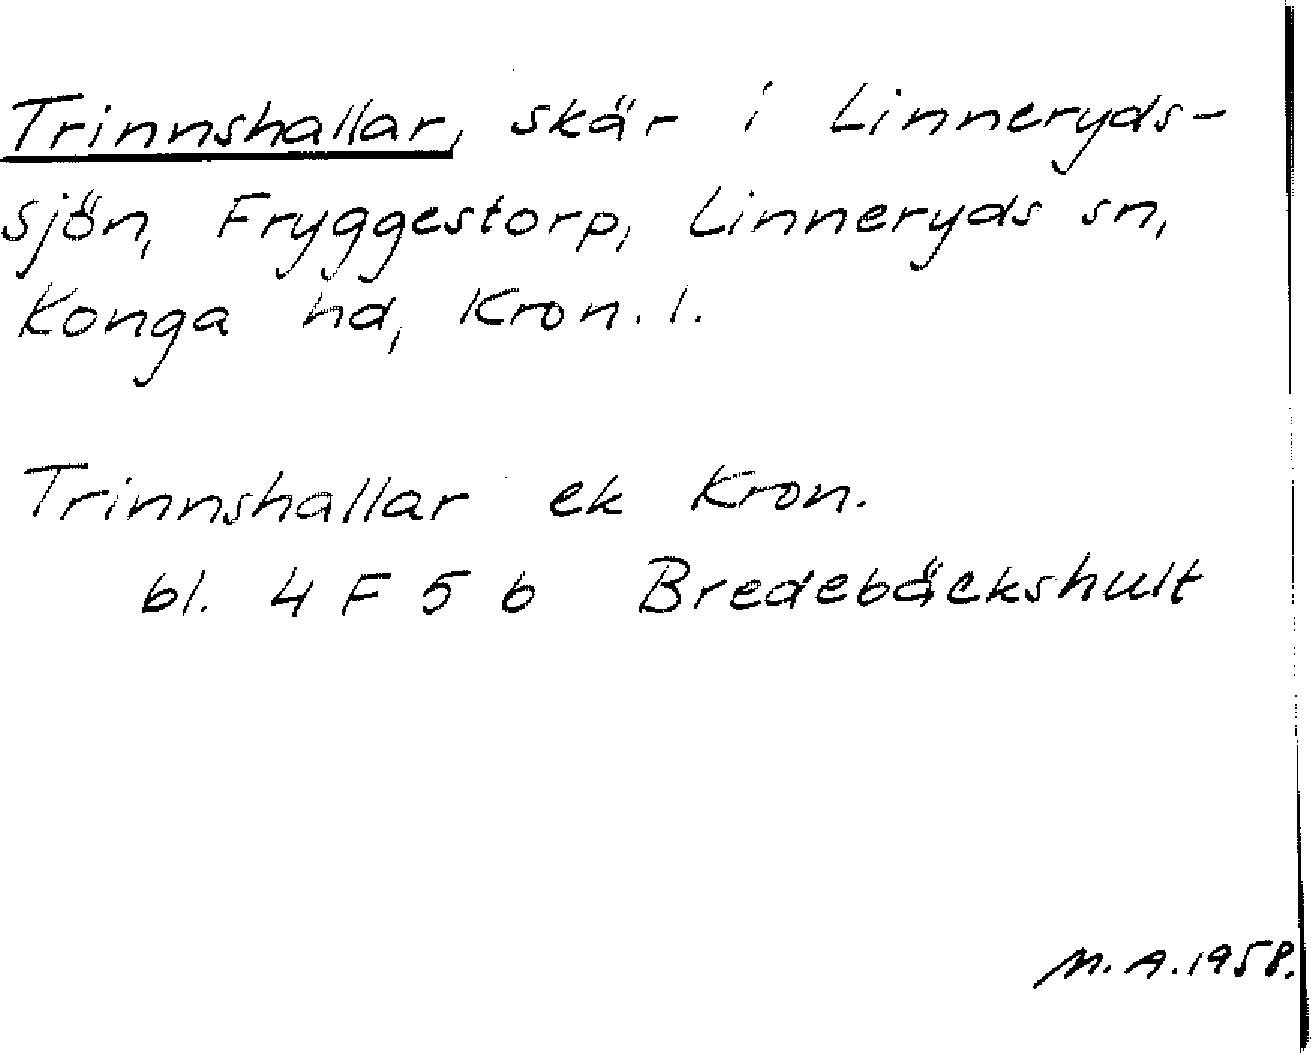 Trinnshallar, skär i Linneryds-
sjön, Fryggestorp, Linneryds sn,
Konga hd, Kron. l.
Trinnshallar ek Kron.
bl. 4 F 5 b Bredebäckshult
M. A. 1958.